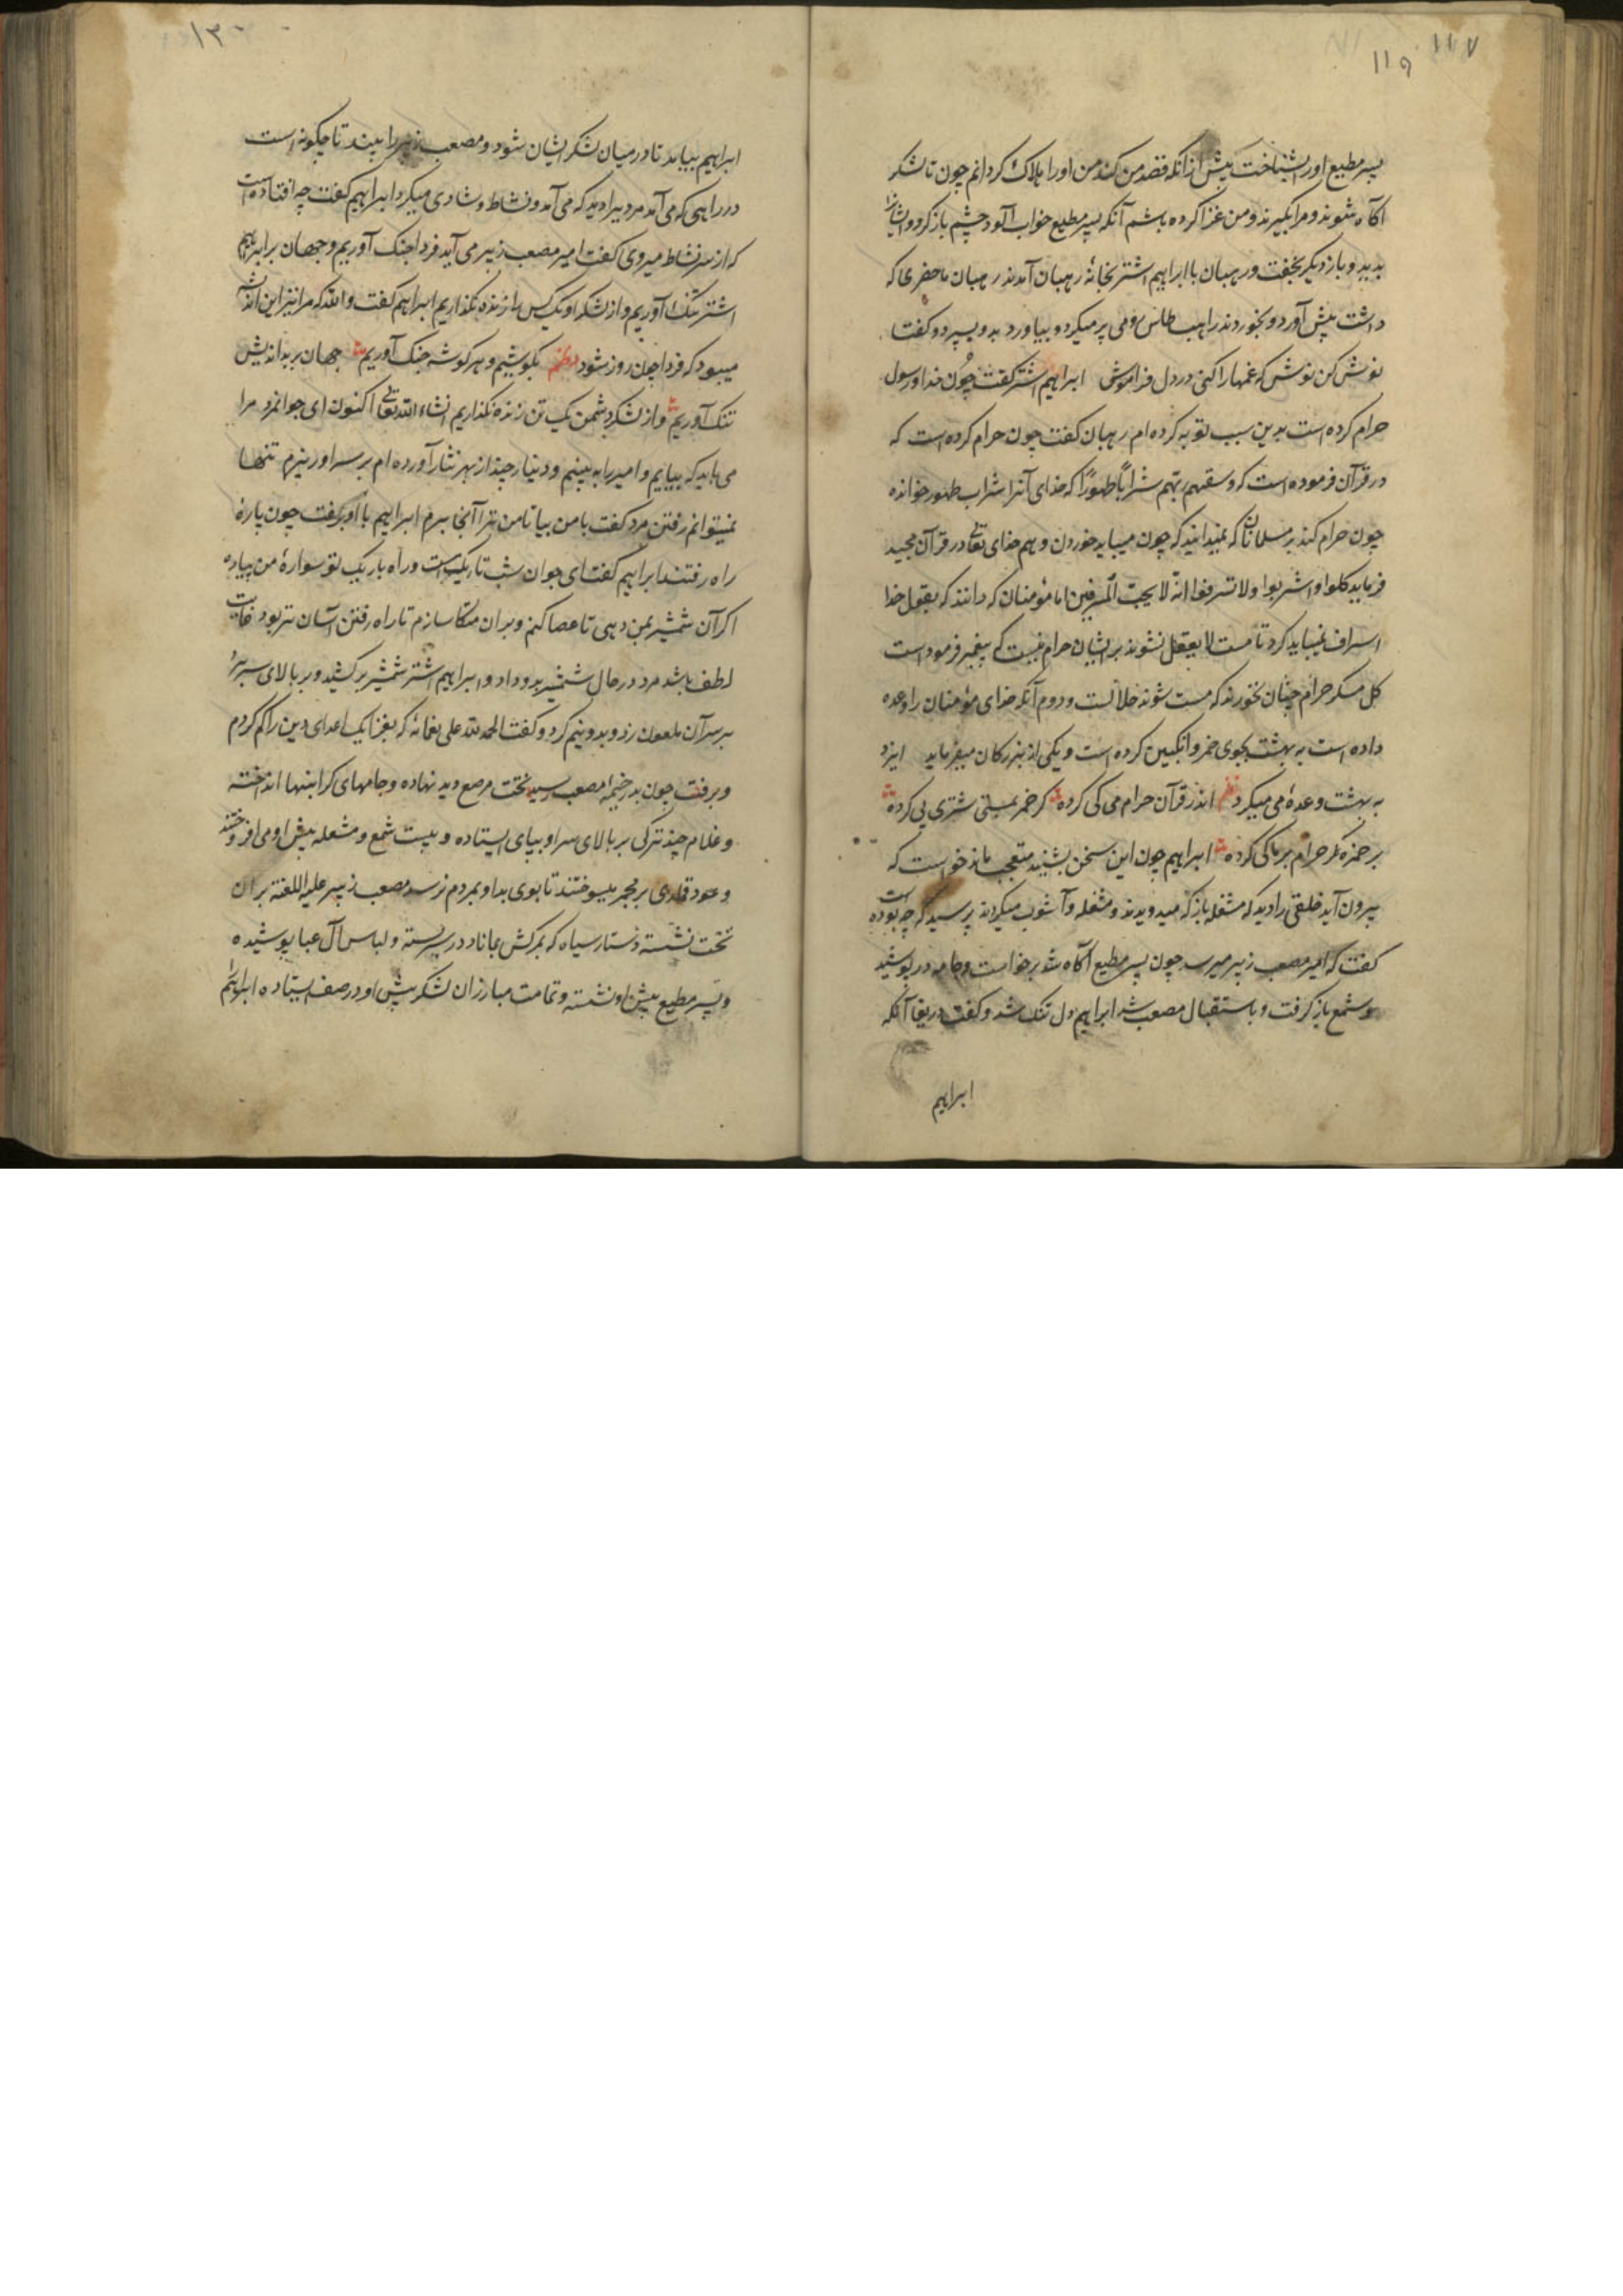 ۱۱۷
۱۱۹
پسر مطیع اورا بشناخت پیش ازانکه قصد من کند من اورا هلاک کردانم چون تا لشکر
آکاه شوند و مرا بگیرند و من غزا کرده باشم آنکه پسر مطیع خواب آلود چشم باز کرد و ایشانرا
بدید و باز دیکر بخفت و رهبان با ابراهیم اشتر بخانهٔ رهبان آمدند رهبان ماحضری که
داشت پیش آورد و بخوردند راهب طاس رومی پر میکرد و بیاورد بدو سپرد و کفت
نوش کن نوش که غمها را کنی در دل فراموش ابراهیم اشتر کفت چون خدا و رسول
حرام کرده است بدین سبب توبه کرده ام رهبان کفت چون حرام کرده است که
در قرآن فرموده است که وسقیهم ربهم شراباً طهوراً که خدای آنرا شراب طهور خوانده
چون حرام کند بر مسلمانان که نمیدانید که چون میباید خوردن و هم خدای تعالی در قرآن مجید
فرماید کلوا و اشربوا ولا تسرفوا انه لا یحب المسرفین اما مؤمنان که دانند که بقول خدا
اسراف نمیباید کرد تا مست لا یعقل نشوند بر ایشان حرام نیست که پیغمبر فرموده است
کل مسکر حرام چنان نخورند که مست شوند حلالست و دوم آنکه خدای مؤمنان را وعده
داده است به بهشت بجوی خمر و انکبین کرده است و یکی از بزرکان میفرماید ایزد
به بهشت وعدهٔ می میکرد نظم اندر قرآن حرام می کی کرده کر خمر بمستی شتری پی کرده
بر حمزه کر حرام بر ما کی کرده ابراهیم چون این سخن بشنید متعجب ماند خواست که
بیرون آید خلقی را دید که مشعله بازکه میدویدند و مشغله و آشوب میکردند پرسید که چه بوده است
کفت که امیر مصعب زبیر میرسد چون پسر مطیع آکاه شد برخواست و جامه در پوشید
و شمع باز کرفت و باستقبال مصعب شد ابراهیم دل تنک شد و کفت دریغا آنکه
ابراهیم
۱۳۰
ابراهیم بیاید تا در میان لشکر ایشان شود و مصعب زبیر را ببیند تا چکونه است
در راهی که می آمد مردیرا دید که می آمد و نشاط و شادی میکرد ابراهیم کفت چه افتاده است
که از سر نشاط میروی کفت امیر مصعب زبیر می آید فردا جنک آوریم و جهان بر ابراهیم
اشتر تنک آوریم و از لشکر او یک کس را زنده نکذاریم ابراهیم کفت والله که مرا نیز این اندیشه
میبود که فردا چون روز شود نظم بکوشیم و هر کوشه جنک آوریم جهان بر بداندیش
تنک آوریم و از لشکر دشمن یک تن زنده نکذاریم انشاء الله تعالی اکنون ای جوانمرد مرا
می باید که بیایم و امیر را به بینم و دینار چند از بهر نثار آورده ام بر سر او ریزم تنها
نمیتوانم رفتن مرد کفت با من بیا تا من ترا آنجا برم ابراهیم با او برفت چون پارهٔ
راه رفتند ابراهیم کفت ای جوان شب تاریکست و راه باریک تو سوارهٔ من پیاده
اکر آن شمشیر بمن دهی تا عصا کنم و بران متکا سازم تا راه رفتن آسان تر بود غایت
لطف باشد مرد در حال شمشیر بدو داد و ابراهیم اشتر شمشیر برکشید و بر بالای سر برد
بر سر آن ملعون زد و بدو نیم کرد و کفت الحمد لله علی نعمائه که بغزا یک اعدای دین را کم کردم
و برفت چون بدر خیمهٔ مصعب رسید تختت مرصع دید نهاده و جامهای کرانبها انداخته
و غلام چند ترکی بر بالای سر او بپای ایستاده و بیست شمع و مشعله پیش او می افروختند
و عود قماری بر مجمر میسوختند تا بوی بد او بمردم نرسد مصعب زبیر علیه اللعنة بر آن
تخت نشسته دستار سیاه که بمرکش بماناد در سر بسته و لباس آل عبا پوشیده
و پسر مطیع پیش او نشسته و تمامت مبارزان لشکر پیش او در صف ایستاده ابراهیم